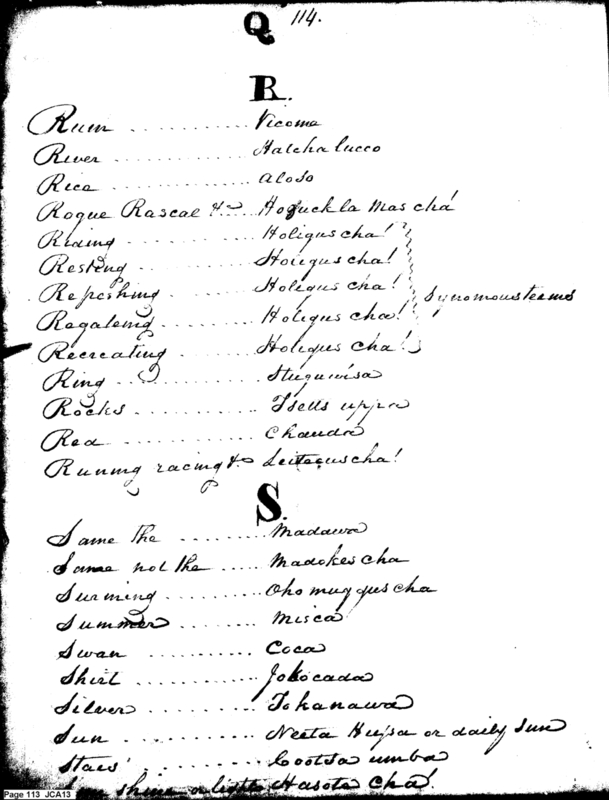 Q 114.
R.
Rum ........... Vicoma
River ........... Hatchalucco
Rice ........... aloso
Rogue Rascal &c Hofuckla Mas chá
Riding ........... Holigus cha!
Resting ........... Holigus cha!
Refreshing ........... Holigus cha!
Synomous teems
Regaleing ........... Holigus cha!
Recreating ........... Holigus cha!
Ring ........... Stuguwisa
Rocks ........... Tsells uppa
Red ........... Chaudá
Runing racing &c Leiteeuscha!
S.
Same the ........ Madawa
Same not the ..... Madokescha
Surming ......... Ohomugguscha
Summer ......... Misca
Swan .......... Coca
Shirt .......... Jokocada
Silver .......... Tokanawa
Sun .......... Neeta Husa or daily Sun
Stars .......... Cootsa umba
shine or light Hasota Chá!
Page 113 JCA13